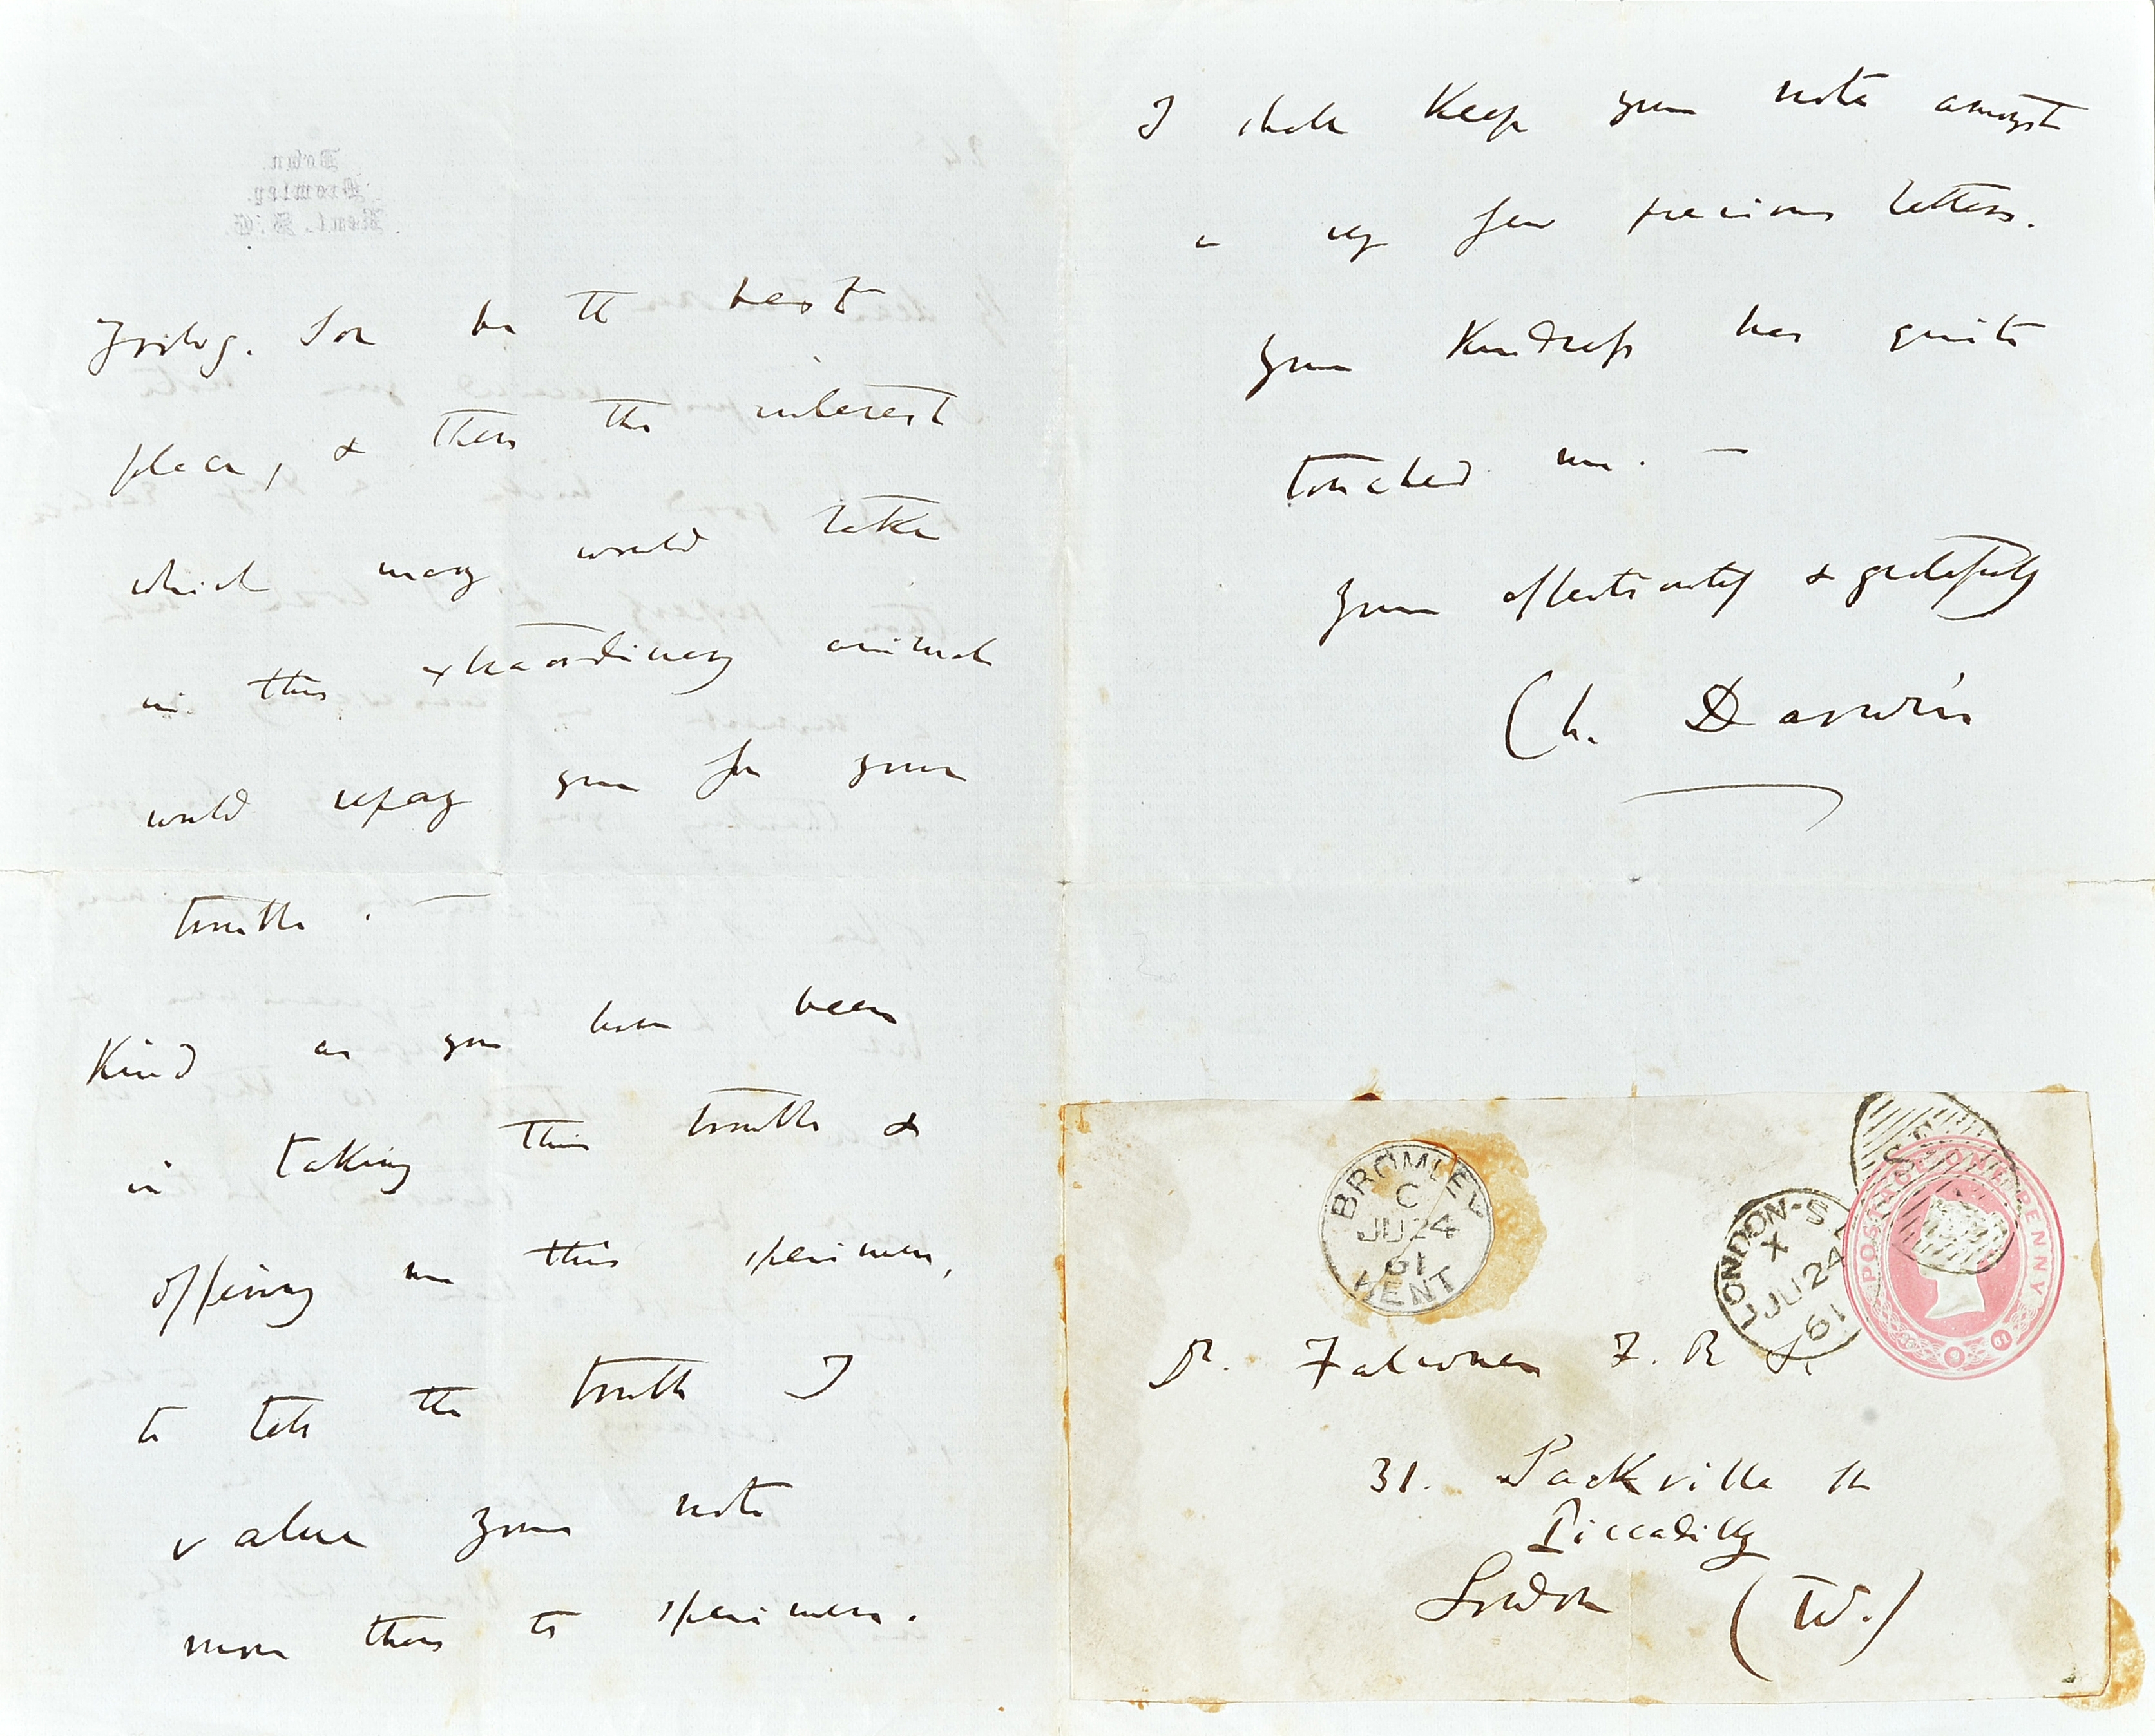 Zoolog. Soc be the best
place, & then the interest
which many would take
in this extraordinary animal
would repay you for your
trouble. —
Kind as you have been
in taking this trouble &
offering me this specimen,
to tell the truth I
value your note
more than the specimen.
I shall keep your note amongst
a very few precious letters.
Your kindness has quite
touched me. —
Yours affectionately & gratefully
Ch. Darwin
BROMLEY
C
JU 24
61
KENT
LONDON-S
X
JU 24
61
POSTAGE ONE PENNY
Dr. Falconer F. R S.
31. Sackville St
Piccadilly
London (W.)
Down.
Bromley.
Kent. S.E.